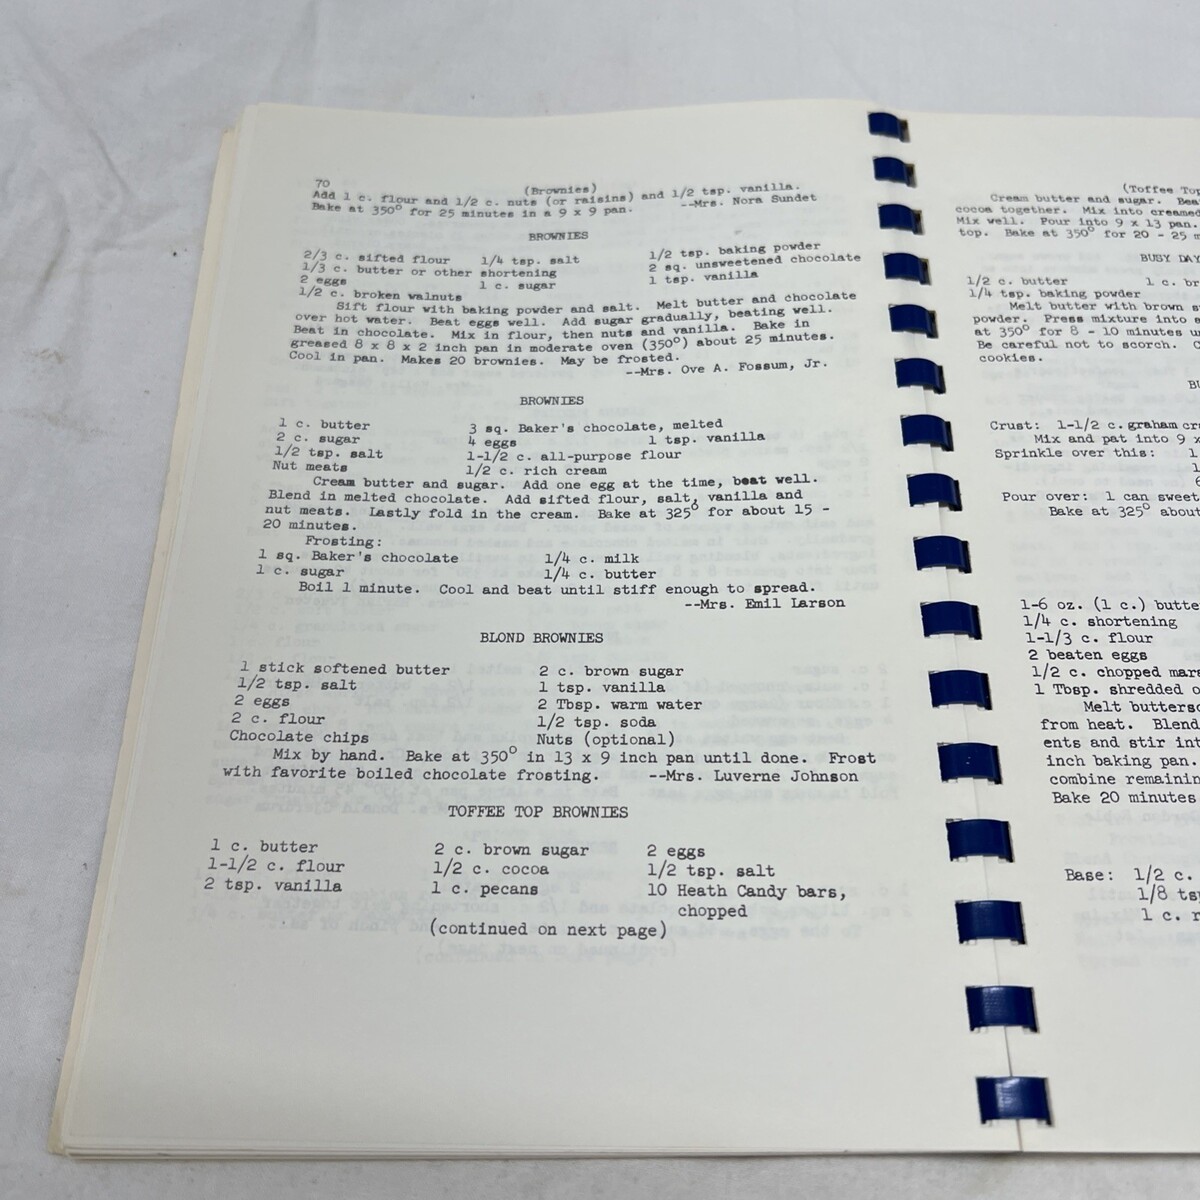 70
(Brownies)
Add 1 c. flour and 1/2 c. nuts (or raisins) and 1/2 tsp. vanilla.
Bake at 350° for 25 minutes in a 9 x 9 pan. --Mrs. Nora Sundet
BROWNIES
2/3 c. sifted flour 1/4 tsp. salt 1/2 tsp. baking powder
1/3 c. butter or other shortening 2 sq. unsweetened chocolate
2 eggs 1 c. sugar 1 tsp. vanilla
1/2 c. broken walnuts
Sift flour with baking powder and salt. Melt butter and chocolate
over hot water. Beat eggs well. Add sugar gradually, beating well.
Beat in chocolate. Mix in flour, then nuts and vanilla. Bake in
greased 8 x 8 x 2 inch pan in moderate oven (350°) about 25 minutes.
Cool in pan. Makes 20 brownies. May be frosted.
--Mrs. Ove A. Fossum, Jr.
BROWNIES
1 c. butter 3 sq. Baker's chocolate, melted
2 c. sugar 4 eggs 1 tsp. vanilla
1/2 tsp. salt 1-1/2 c. all-purpose flour
Nut meats 1/2 c. rich cream
Cream butter and sugar. Add one egg at the time, beat well.
Blend in melted chocolate. Add sifted flour, salt, vanilla and
nut meats. Lastly fold in the cream. Bake at 325° for about 15 -
20 minutes.
Frosting:
1 sq. Baker's chocolate 1/4 c. milk
1 c. sugar 1/4 c. butter
Boil 1 minute. Cool and beat until stiff enough to spread.
--Mrs. Emil Larson
BLOND BROWNIES
1 stick softened butter 2 c. brown sugar
1/2 tsp. salt 1 tsp. vanilla
2 eggs 2 Tbsp. warm water
2 c. flour 1/2 tsp. soda
Chocolate chips Nuts (optional)
Mix by hand. Bake at 350° in 13 x 9 inch pan until done. Frost
with favorite boiled chocolate frosting. --Mrs. Luverne Johnson
TOFFEE TOP BROWNIES
1 c. butter 2 c. brown sugar 2 eggs
1-1/2 c. flour 1/2 c. cocoa 1/2 tsp. salt
2 tsp. vanilla 1 c. pecans 10 Heath Candy bars,
chopped
(continued on next page)
(Toffee Top
Cream butter and sugar. Bea
cocoa together. Mix into creamed
Mix well. Pour into 9 x 13 pan.
top. Bake at 350° for 20 - 25 m
BUSY DAY
1/2 c. butter 1 c. br
1/4 tsp. baking powder
Melt butter with brown s
powder. Press mixture into
at 350° for 8 - 10 minutes un
Be careful not to scorch. C
cookies.
Crust: 1-1/2 c. graham cr
Mix and pat into 9 x
Sprinkle over this: 1
1
6
Pour over: 1 can sweet
Bake at 325° about
1-6 oz. (1 c.) butte
1/4 c. shortening
1-1/3 c. flour
2 beaten eggs
1/2 c. chopped mars
1 Tbsp. shredded o
Melt buttersc
from heat. Blend
ents and stir int
inch baking pan.
combine remainin
Bake 20 minutes
Base: 1/2 c.
1/8 ts
1 c. r